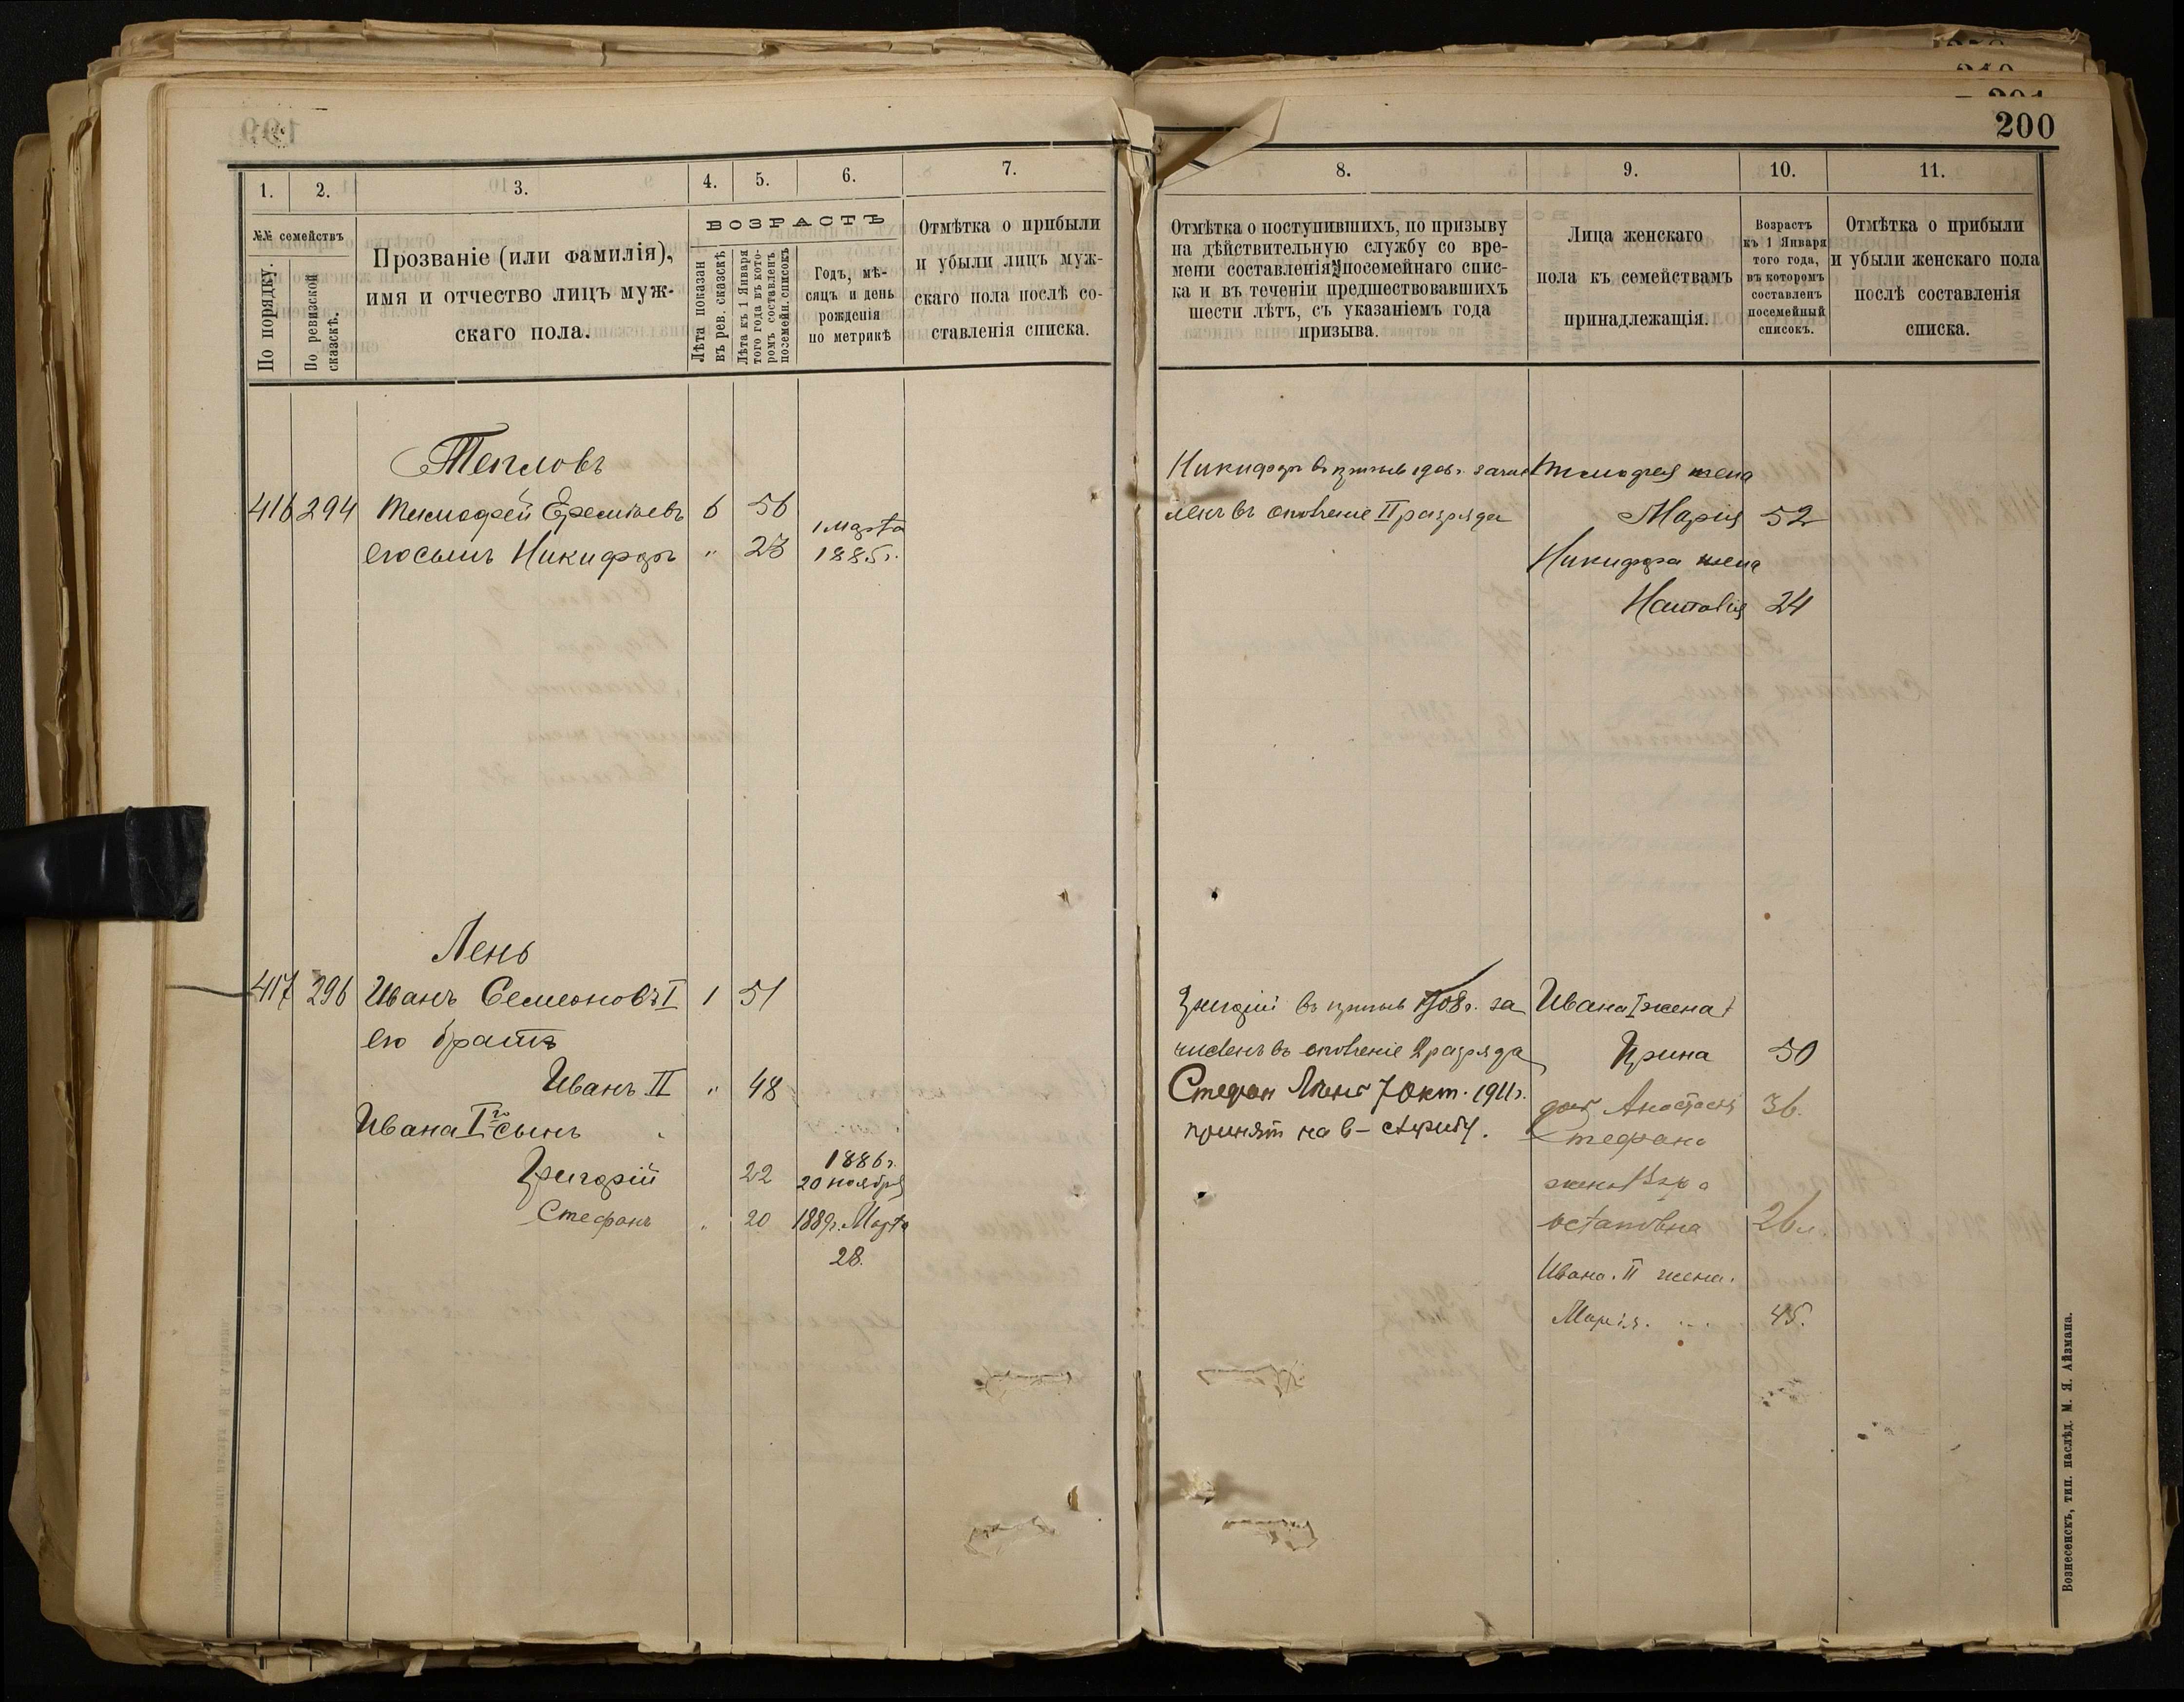 200
1.
2.
3.
4.
5.
6.
7.
№№ семействъ
По порядку.
По ревизской сказкѣ.
Прозваніе (или фамилія),
имя и отчество лицъ муж-
скаго пола.
ВОЗРАСТЪ
Лѣта показан
въ рев. сказскѣ
Лѣта къ 1 Января
того года въ кото-
ромъ составленъ
посемейн. списокъ
Годъ, мѣ-
сяцъ и день
рожденія
по метрикѣ
Отмѣтка о прибыли
и убыли лицъ муж-
скаго пола послѣ со-
ставленія списка.
Тепловъ
416 294 Тимофей Еремѣевъ 6 56
его сынъ Никифоръ " 23 1 марта
1885 г.
Лень
417 296 Иванъ Семеновъ I 1 51
его братъ
Иванъ II " 48
Ивана Iго сынъ
Григорій 22 1886 г.
20 ноября
Стефанъ " 20 1889 г. Марта
28.
8.
9.
10.
11.
Отмѣтка о поступившихъ, по призыву
на дѣйствительную службу со вре-
мени составленія посемейнаго спис-
ка и въ теченіи предшествовавшихъ
шести лѣтъ, съ указаніемъ года
призыва.
Лица женскаго
пола къ семействамъ
принадлежащія.
Возрастъ
къ 1 Января
того года,
въ которомъ
составленъ
посемейный
списокъ.
Отмѣтка о прибыли
и убыли женскаго пола
послѣ составленія
списка.
Никифоръ въ призыв 1906 г. зачис
ленъ въ ополченіе II разряда
Тимофея жена
Марія 52
Никифора жена
24
Григорій въ призыв 1908 г. за
численъ въ ополченіе 2 разряда
Стефан Лень 7 Окт. 1911 г.
принят на в-
Ивана I жена
Ирина 50
доч Анастасія 36.
Стефана
жена
26 л.
Ивана II жена.
Марія. 45.
Вознесенскъ, тип. наслѣд. М. Я. Айзмана.